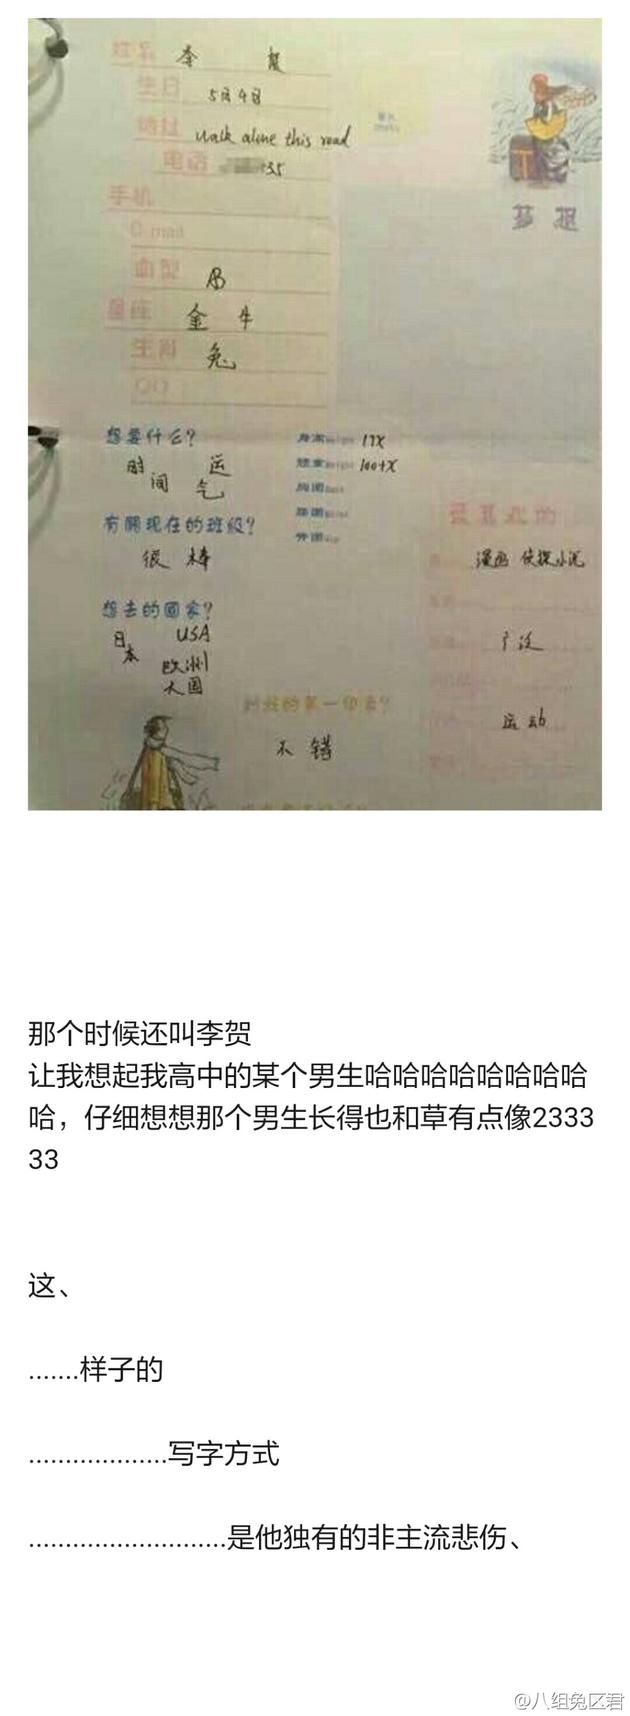 姓名 李 贺
生日 5月4日
地址 walk alone this road
电话 35
手机
E-mail
血型 B
星座 金 牛
生肖 兔
QQ
梦 想
想要什么?
时间 运气
身高 17X
体重 100+X
胸围
腰围
臀围
有关现在的班级?
很 棒
最喜欢的
漫画 侦探小说
想去的国家?
日本 USA
欧洲
大国
广泛
对我的第一印象?
不 错
运动
那个时候还叫李贺
让我想起我高中的某个男生哈哈哈哈哈哈哈哈
哈，仔细想想那个男生长得也和草有点像2333
33
这、
.......样子的
...................写字方式
...........................是他独有的非主流悲伤、
@八组兔区君